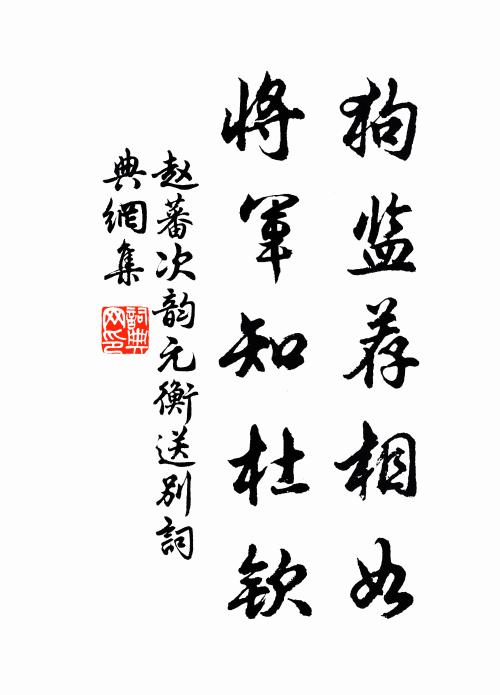 狗监荐相如
将军知杜钦
赵蕃次韵元衡送别詞
典網集
詞典網印